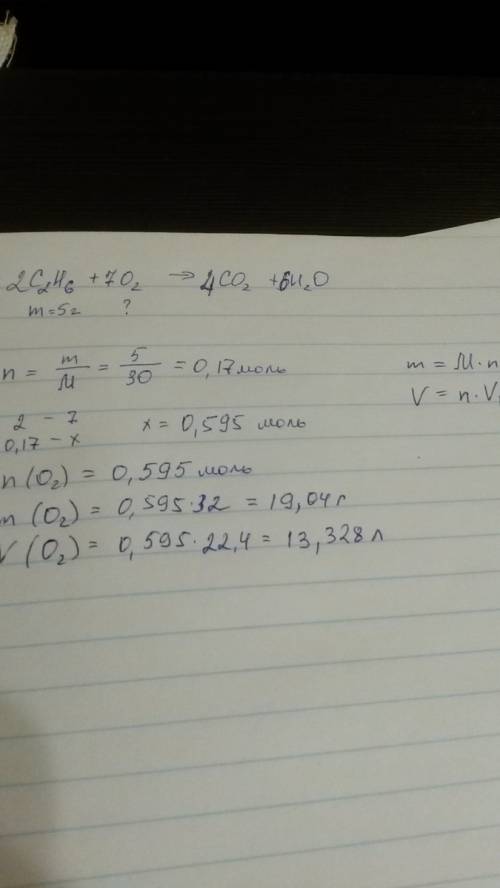 2C₂H₆ + 7O₂ → 4CO₂ + 6H₂O
m=5г ?
n = m/M = 5/30 = 0,17 моль
m = M·n
V = n·V
2 – 7
0,17 – x
x = 0,595 моль
n(O₂) = 0,595 моль
m(O₂) = 0,595·32 = 19,04 г
V(O₂) = 0,595·22,4 = 13,328 л